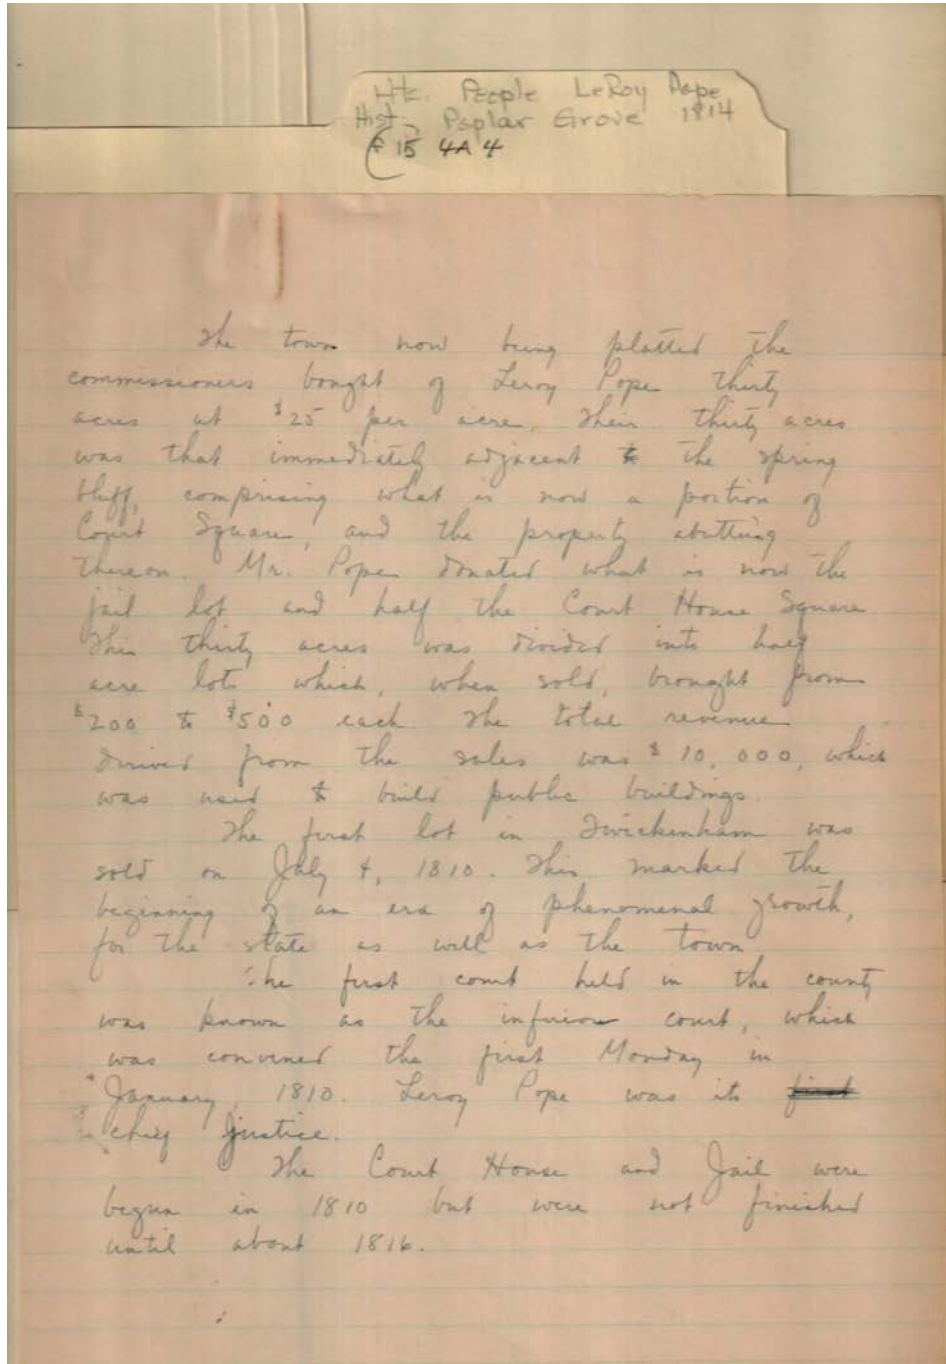 Hte. People LeRoy Pope
Hist - Poplar Grove 1814
F 15 4A 4
The town now being platted the
commissioners bought of Leroy Pope thirty
acres at $25 per acre. Their thirty acres
was that immediately adjacent to the spring
bluff, comprising what is now a portion of
Court Square, and the property abutting
thereon. Mr. Pope donated what is now the
jail lot and half the Court House Square
This thirty acres was divided into half
acre lots which, when sold, brought from
$200 to $500 each The total revenue
derived from the sales was $10,000, which
was used to build public buildings.
The first lot in Twickenham was
sold on July 4, 1810. This marked the
beginning of an era of phenomenal growth,
for the state as well as the town.
The first court held in the county
was known as the inferior court, which
was convened the first Monday in
January, 1810. Leroy Pope was its first
chief justice.
The Court House and Jail were
begun in 1810 but were not finished
until about 1816.